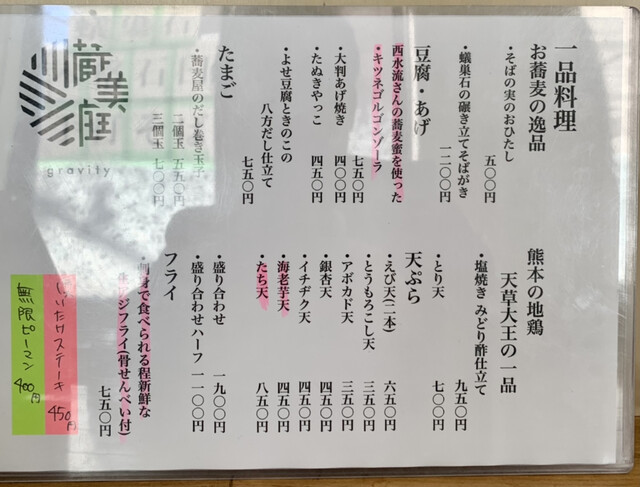 一品料理
お蕎麦の逸品
・そばの実のおひたし
五〇〇円
・蟻巣石の碾き立てそばがき
一二〇〇円
豆腐・あげ
西水流さんの蕎麦蜜を使った
・キツネゴルゴンゾーラ
七五〇円
・大判あげ焼き 四〇〇円
・たぬきやっこ 四五〇円
・よせ豆腐ときのこの
八方だし仕立て
七五〇円
たまご
・蕎麦屋のだし巻き玉子
二個玉 五五〇円
三個玉 七〇〇円
熊本の地鶏
天草大王の一品
・塩焼き みどり酢仕立て
九五〇円
・とり天 七〇〇円
天ぷら
・えび天(二本) 六五〇円
・とうもろこし天 三五〇円
・アボカド天 三五〇円
・銀杏天 四五〇円
・イチヂク天 四五〇円
・海老芋天 四五〇円
・たち天 八五〇円
・盛り合わせ 一九〇〇円
・盛り合わせハーフ 一一〇〇円
フライ
・刺身で食べられる程新鮮な
アジフライ(骨せんべい付)
七五〇円
蔵美庭
gravity
しいたけステーキ 450円
無限ピーマン 400円